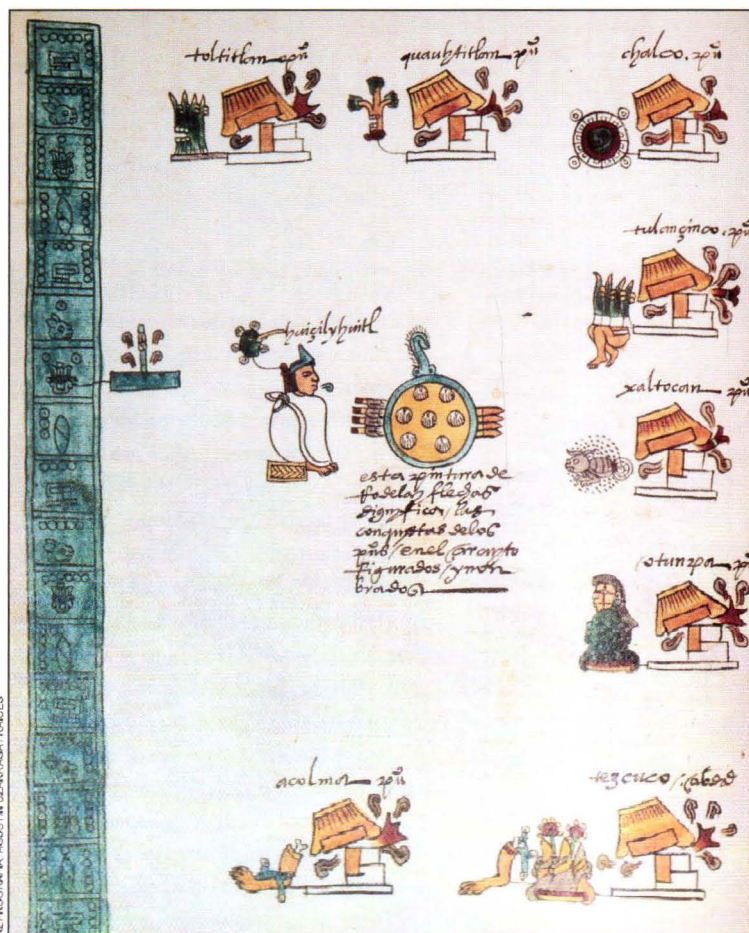 toltitlan. puº
quauhtitlan. puº
chalco. puº
tulançinco. puº
huiçilyhuitl
xaltocan puº
esta pintura de
Rodela y flechas
significa / las
conquistas delos
puºs / enel circuyto
figurados / y nom
brados
otunpa puº
acolma puº
tezcuco /